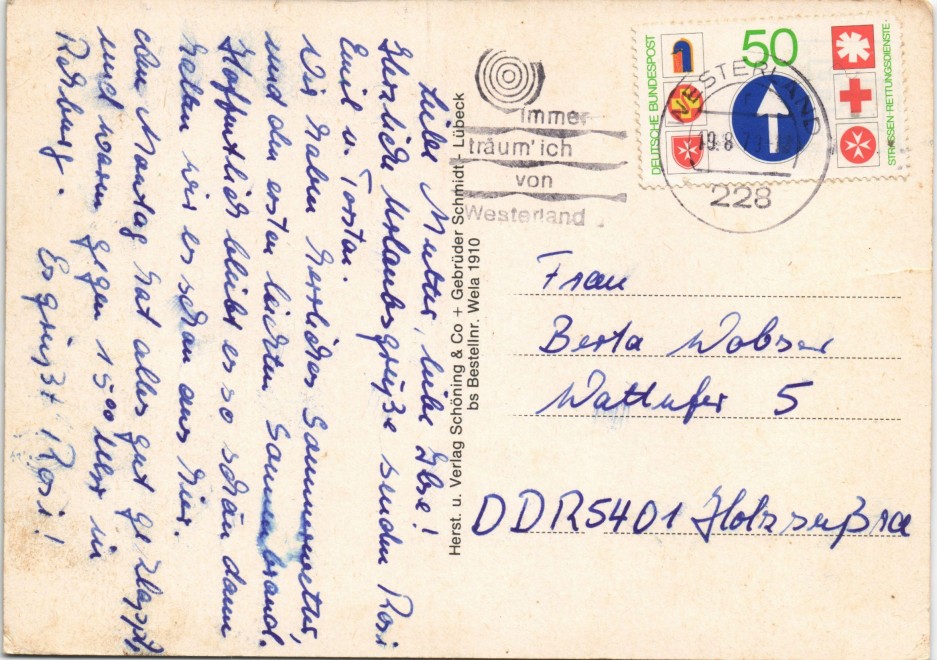 Liebe Mutter, liebe Ilse!
Herzliche Urlaubsgrüße senden Rosi
Emil u. Torsten.
Wir haben herrliches Sommerwetter,
und den ersten leichten Sonnenbrand.
Hoffentlich bleibt es so schön dann
halten wir es schon aus hier.
Am Montag hat alles gut geklappt,
und waren gegen 1500 Uhr in
Es grüßt Rosi!
Herst. u. Verlag Schöning & Co + Gebrüder Schmidt - Lübeck
bs Bestellnr. Wela 1910
immer
träum' ich
von
Westerland
DEUTSCHE BUNDESPOST
50
STRASSEN-RETTUNGSDIENSTE
WESTERLAND
228
Frau
Berta Wobser
Wattufer 5
DDR 5401 Holzsußra